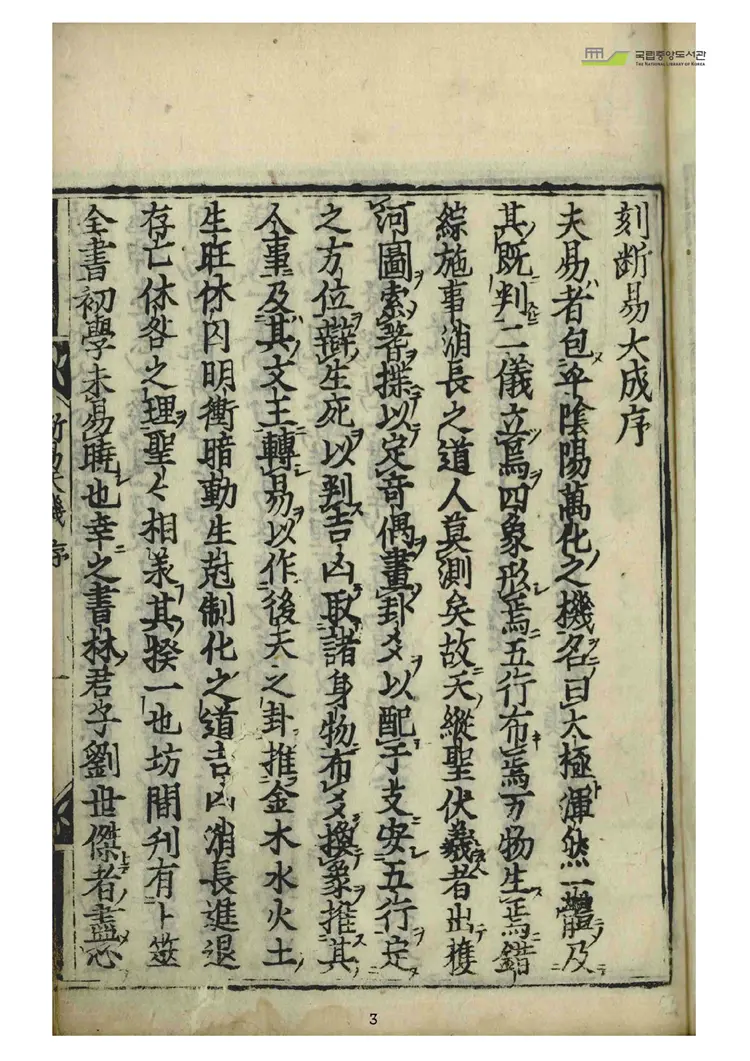 국립중앙도서관
THE NATIONAL LIBRARY OF KOREA
刻断易大成序
夫易者包乎陰陽萬化之機名曰太極渾然一體及
其既判二儀立焉四象形焉五行布焉万物生焉錯
綜施事消長之道人莫測矣故天縱聖伏羲者出獲
河圖索蓍揲以定竒偶畫卦爻以配干支安五行定
之方位辯生死以判吉凶取諸身物布爻換象推其
人事及其文王轉易以作後天之卦推金木水火土
生旺休囚明衝暗動生尅制化之道吉凶消長進退
存亡休咎之理聖〻相羕其揆一也坊間刋有卜筮
全書初學未易曉也幸之書林君子劉世傑者盡心
断易大機 序
一
3